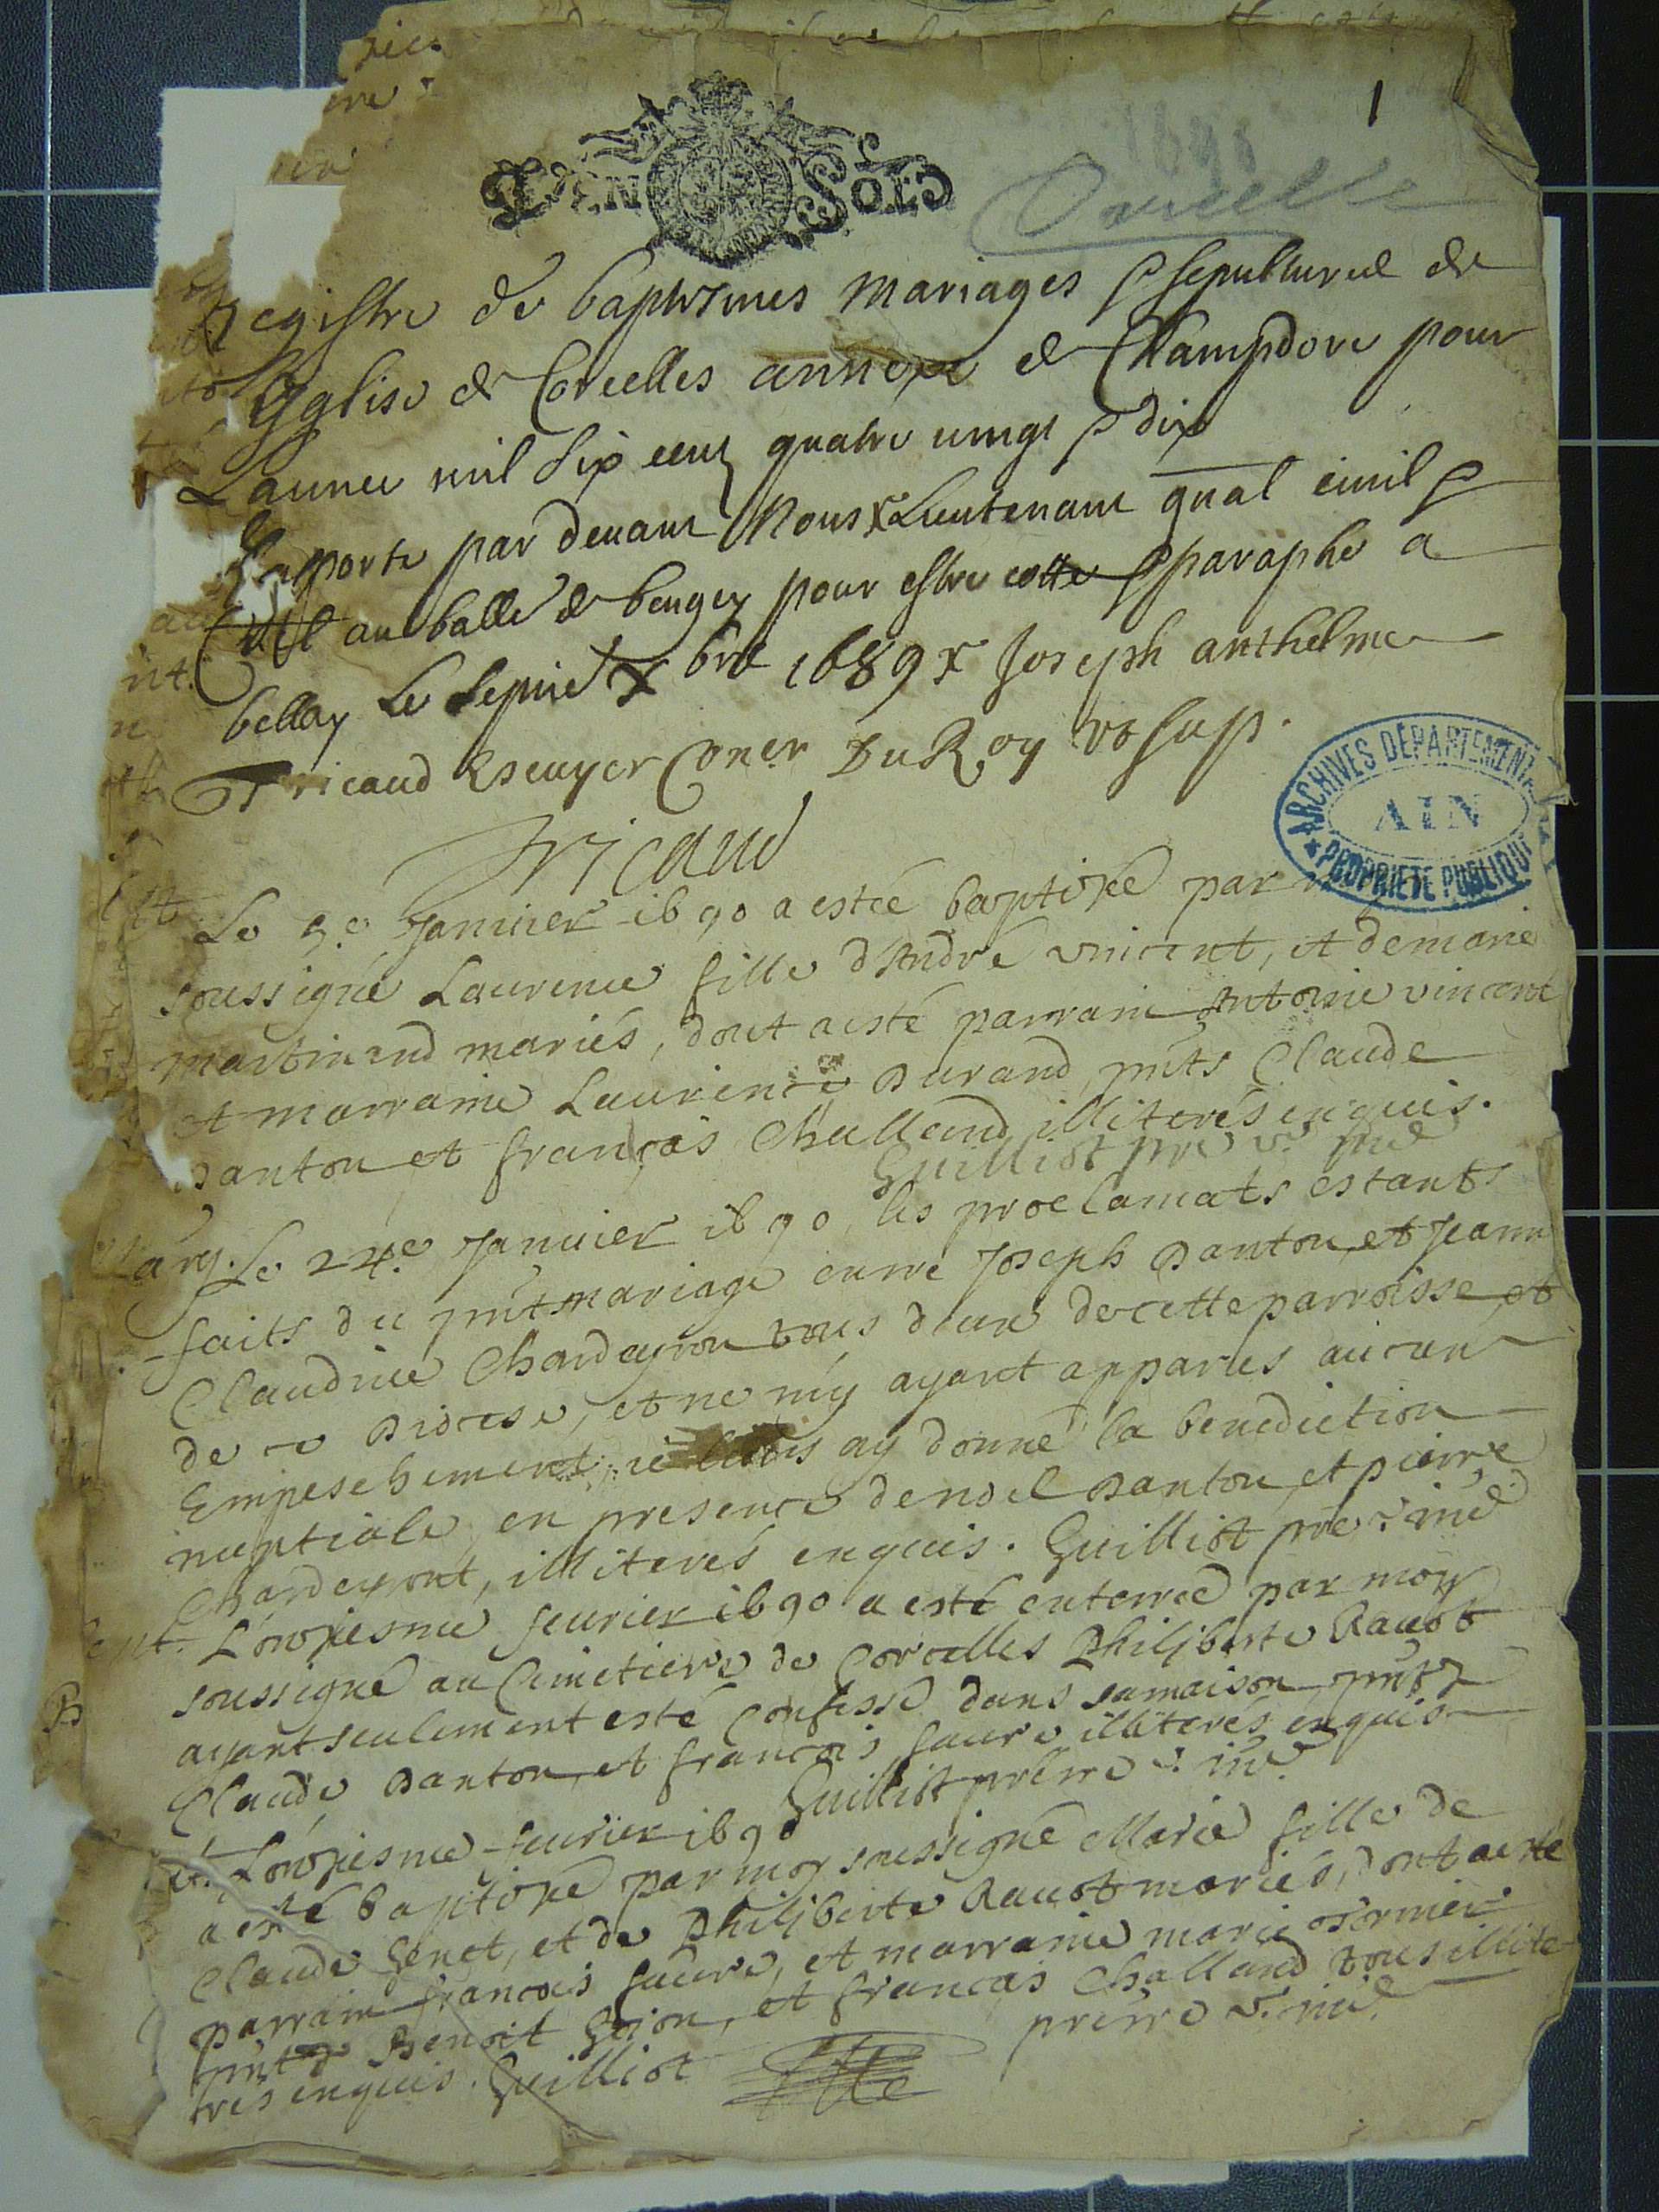 1
1690
Corcelle
DEN SOLS
Registre de baptesmes mariages & sepultures de
L'Eglise de Corcelles annexe de Champdore pour
L'annee mil six cent quatre vingt & dix
Raporte par devant Nous Lieutenant gnal civil &
au balle de beugey pour estre cotte & paraphe a
bellay Le Xbre 1689 Joseph anthelme
Tricaud Escuyer Coner Du Roy
Tricaud
ARCHIVES DEPARTEMENTA
AIN
PROPRIETE PUBLIQUE
Le 5e Janvier 1690 a estée baptisée par
soussigné Laurence fille d'André vincent, et de marie
martinand mariés, dont a esté parrain Antoine vincent
et marraine Laurence Durand, pnts Claude
Danton et françois Challand illiterés enquis.
Guilliot pre v. mre
Le 24e Janvier 1690, les proclamats estants
faits du pnt mariage entre Joseph Danton, et Jeanne
Claudine Chardeyron tous deux de cette parroisse, et
de ce Diocese, et ne m'y ayant apparus aucun
Empeschement, ie leurs ay donné la benediction
nuptiale, en presence de noel Danton, et pierre
Chardeyront, illiterés enquis. Guilliot pre v. mre
L'onziesme fevrier 1690 a esté enterrée par moy
soussigné au Cimetiere de Corcelles Philiberte Ravot
ayant seulement esté Confessé dans sa maison pnts
Claude Danton, et françois favre illiterés enquis
Guilliot prebre v. mre
L'onziesme fevrier 1690
a esté baptisée par moy soussigné Marie fille de
Claude Genet, et de Philiberte Ravot mariés, dont a esté
parrain françois favre, et marraine marie
pnts Benoit Goion, et françois Challand tous illite
rés enquis. Guilliot prebre v. mre